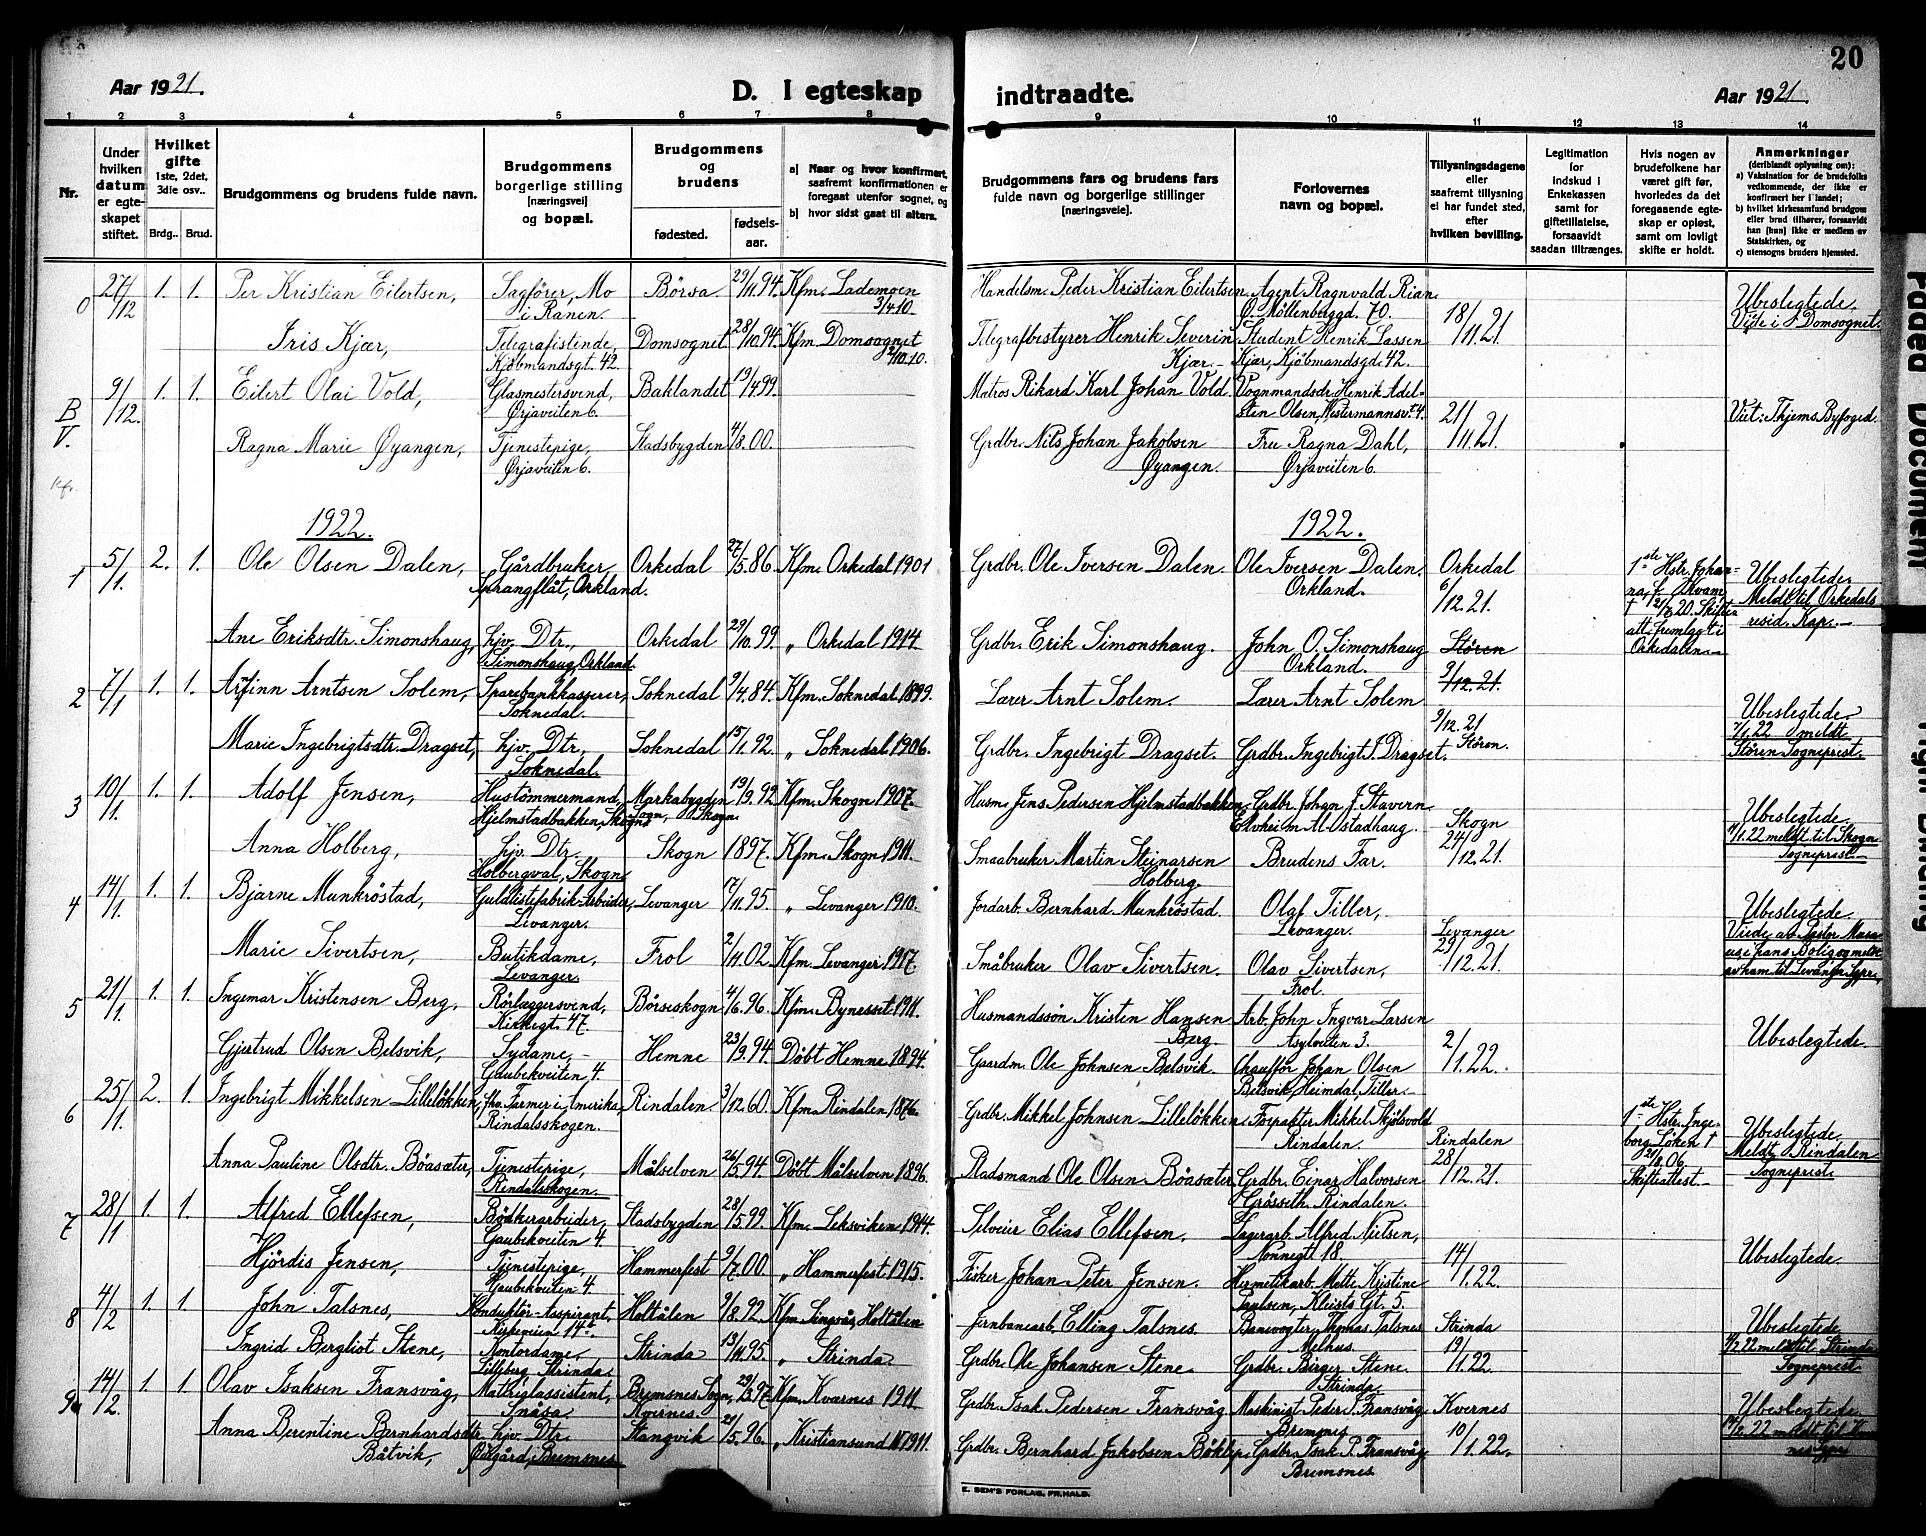 20
Aar 1921.
D. I egteskap
indtraadte.
Aar 1921.
1 2 3 4 5 6 7 8
9 10 11 12 13 14
Nr.
Under hvilken datum er egteskapet stiftet.
Hvilket gifte 1ste, 2det, 3die osv..
Brdg.. Brud.
Brudgommens og brudens fulde navn.
Brudgommens borgerlige stilling [næringsvei] og bopæl.
Brudgommens og brudens
fødested.
fødsels-aar.
a) Naar og hvor konfirmert, saafremt konfirmationen er foregaat utenfor sognet, og
b) hvor sidst gaat til alters.
Brudgommens fars og brudens fars fulde navn og borgerlige stillinger [næringsveie].
Forlovernes navn og bopæl.
Tillysningsdagene eller saafremt tillysning ei har fundet sted, efter hvilken bevilling.
Legitimation for indskud i Enkekassen samt for giftetillatelse, forsaavidt saadan tiltrænges.
Hvis nogen av brudefolkene har været gift før, hvorledes da det foregaaende egteskap er opløst, samt om lovligt skifte er holdt.
Anmerkninger (deriblandt oplysning om):
a) Vaksination for de brudefolks vedkommende, der ikke er konfirmert her i landet;
b) hvilket kirkesamfund brudgom eller brud tilhører, forsaavidt han [hun] ikke er medlem av Statskirken, og
c) utensogns bruders hjemsted.
0 27/12 1. 1. Per Kristian Eilertsen, Sagfører, Mo i Ranen. Börsa 29/11.94. Kfm. Lademoen 3/4 10. Handelsm. Peder Kristian Eilertsen. Agent Ragnvald Rian Ø. Möllenberggd. 70. 18/11.21. Ubeslegtede, Viede i Domsognet.
Iris Kjær, Telegrafistinde, Kjøbmandsgt. 42. Domsognet 28/10.94. Kfm. Domsognet 2/10.10. Telegrafbestyrer Henrik Severin Kjær. Student Henrik Lassen Kjær, Kjøbmandsgd. 42.
B/V. 9/12. 1. 1. Eilert Olai Vold, Glasmestersvend, Ørjaveiten 6. Baklandet 19/4 99. Matros Rikard Karl Johan Vold. Vognmandsdr. Henrik Adelsten Olsen, Westermannsv. 4. 21/11.21. Viet: Thjems Byfoged.
Ragna Marie Øyangen, Tjenestepige, Ørjaveiten 6. Stadsbygden 4/8.00. Grdbr. Nils Johan Jakobsen Øyangen. Fru Ragna Dahl, Ørjaveiten 6.
1922.
1922.
1 5/1. 2. 1. Ole Olsen Dalen, Gårdbruker Sprangflåt, Orkland. Orkedal 27/5.86. Kfm. Orkedal 1901 Grdbr. Ole Iversen Dalen. Ole Iversen Dalen. Orkland. Orkedal 6/12.21. 1ste Hstr. Johanna f. Kvam, † 21/8.20. Skifteatt. fremlagt i Orkedalen. Ubeslegtede. Meldt til Orkedals resid. Kap.
Ane Eriksdtr. Simonshaug, hjv. Dtr., Simonshaug, Orkland. Orkedal 29/10.99. „ Orkedal 1914. Grdbr. Erik Simonshaug. John O. Simonshaug Orkland. Stören
2 7/1 1. 1. Arfinn Arntsen Solem, Sparebankkasserer, Soknedal. Soknedal 9/4.84. Kfm. Soknedal 1899. Lærer Arnt Solem. Lærer Arnt Solem 9/12.21. Ubeslegtede 7/1 22 meldt Stören Sogneprest.
Marie Ingebrigtsdtr. Dragset, hjv. Dtr, Soknedal. Soknedal 15/1.92. „ Soknedal 1906. Grdbr. Ingebrigt Dragset. Grdbr. Ingebrigt J. Dragset. 9/12.21 Stören.
3 10/1. 1. 1. Adolf Jensen, Hustömmermand, Hjelmstadbakken, Skogn Markabygden Sogn, Skogn. 19/9.92 Kfm. Skogn 1907. Husm. Jens Pedersen Hjelmstadbakken. Grdbr. Johan J. Stavern Elvheim Al. Ostadhaug. Skogn 24/12.21. Ubeslegtede. 1/1.22 meldt til Skogn Sogneprest.
Anna Holberg, hjv. Dtr. Holbergval, Skogn. Skogn 1897. Kfm. Skogn 1911. Smaabruker Martin Steinarsen Holberg. Brudens Far.
4 14/1. 1. 1. Bjarne Munkröstad, Guldlistefabrik-Arbeider, Levanger. Levanger 17/11.95. „ Levanger 1910. Jordarb. Bernhard Munkröstad. Olaf Tiller, Levanger. Levanger 29/12.21. Ubeslegtede. Viede av Pastor
Marie Sivertsen, Butikdame, Levanger. Frol 2/11.02. Kfm. Levanger 1917. Småbruker Olav Sivertsen. Olav Sivertsen, Frol.
5 21/1. 1. 1. Ingemar Kristensen Berg, Rörlæggersvend, Kirkegt. 47. Börseskogn 4/6.96. Kfm. Bynesset 1911. Husmandssön Kristen Hansen Berg. Arb. John Ingvar Larsen Asylveiten 3. 2/1.22. Ubeslegtede.
Gjertrud Olsen Belsvik, Sydame, Gaubekveiten 4. Hemne 23/9.94. Döbt Hemne 1894. Gaardm. Ole Johnsen Belsvik. Chauffør Johan Olsen Belsvik, Heimdal, Tiller.
6 25/11. 2. 1. Ingebrigt Mikkelsen Lilleløkken, fhv. Farmer i Amerika Rindalsskogen. Rindalen 3/12.60. Kfm. Rindalen 1876. Grdbr. Mikkel Johnsen Lilleløkken. Forpakter Mikkel Skjölsvold Rindalen. Rindalen 28/12.21. 1ste Hstr. Ingeborg Löken † 21/8.06 Skifteattest. Ubeslegtede, Meldt Rindalen Sogneprest.
Anna Pauline Olsdtr. Böasæter, Tjenestepige, Rindalsskogen. Målselven 26/5.94. Döbt Målselven 1896. Stadsmand Ole Olsen Böasæter. Grdbr. Einar Halvorsen Grösseth, Rindalen.
7 28/1 1. 1. Alfred Ellefsen, Bödkerarbeider, Gaubekveiten 4. Stadsbygden 28/5.99. Kfm. Leksviken 1914. Selveier Elias Ellefsen. Lagerarb. Alfred Nielsen, Nonnegt 18. 14/1.22. Ubeslegtede.
Hjördis Jensen, Tjenestepige, Gaubekveiten 4. Hammerfest 9/7.00. „ Hammerfest 1915. Fisker Johan Peter Jensen. Hermetikarb. Mette Kristine Paulsen, Kleists Gt. 5.
8 4/2 1. 1. John Talsnes, Konduktör-Aspirant, Kirkeveien 14b. Holtålen 9/8.92. Kfm. Singsås, Holtålen Jernbanearb. Elling Talsnes. Banevogter Thomas Talsnes Melhus. Strinda 19/1.22 Ubeslegtede 4/2 22 meldt til Strinda Sogneprest.
Ingrid Bergliot Stene, Kontordame, Lilleberg, Strinda. Strinda 13/11.95. „ Strinda. Grdbr. Ole Johansen Stene. Grdbr. Birger Stene. Strinda.
9 14/2. 1. 1. Olav Isaksen Fransvåg, Matriglassistent, Snåsa. Bremsnes Sogn, Kvernes. 29/3.97. Kfm. Kvarnes 1911 Grdbr. Isak Pedersen Fransvåg Maskinist Peder I. Fransvåg. Bremsnes. Kvernes 10/1.22. Ubeslegtede
Anna Berentine Bernhardsdtr. Båtvik, hjv. Dtr. Ödegård, Bremsnes. Stangvik 21/5.96. „ Kristiansund N 1911. Grdbr. Bernhard Jakobsen Böklep. Grdbr. Isak P. Fransvåg. Bremsnes
E. SEM'S FORLAG, FR.HALD.